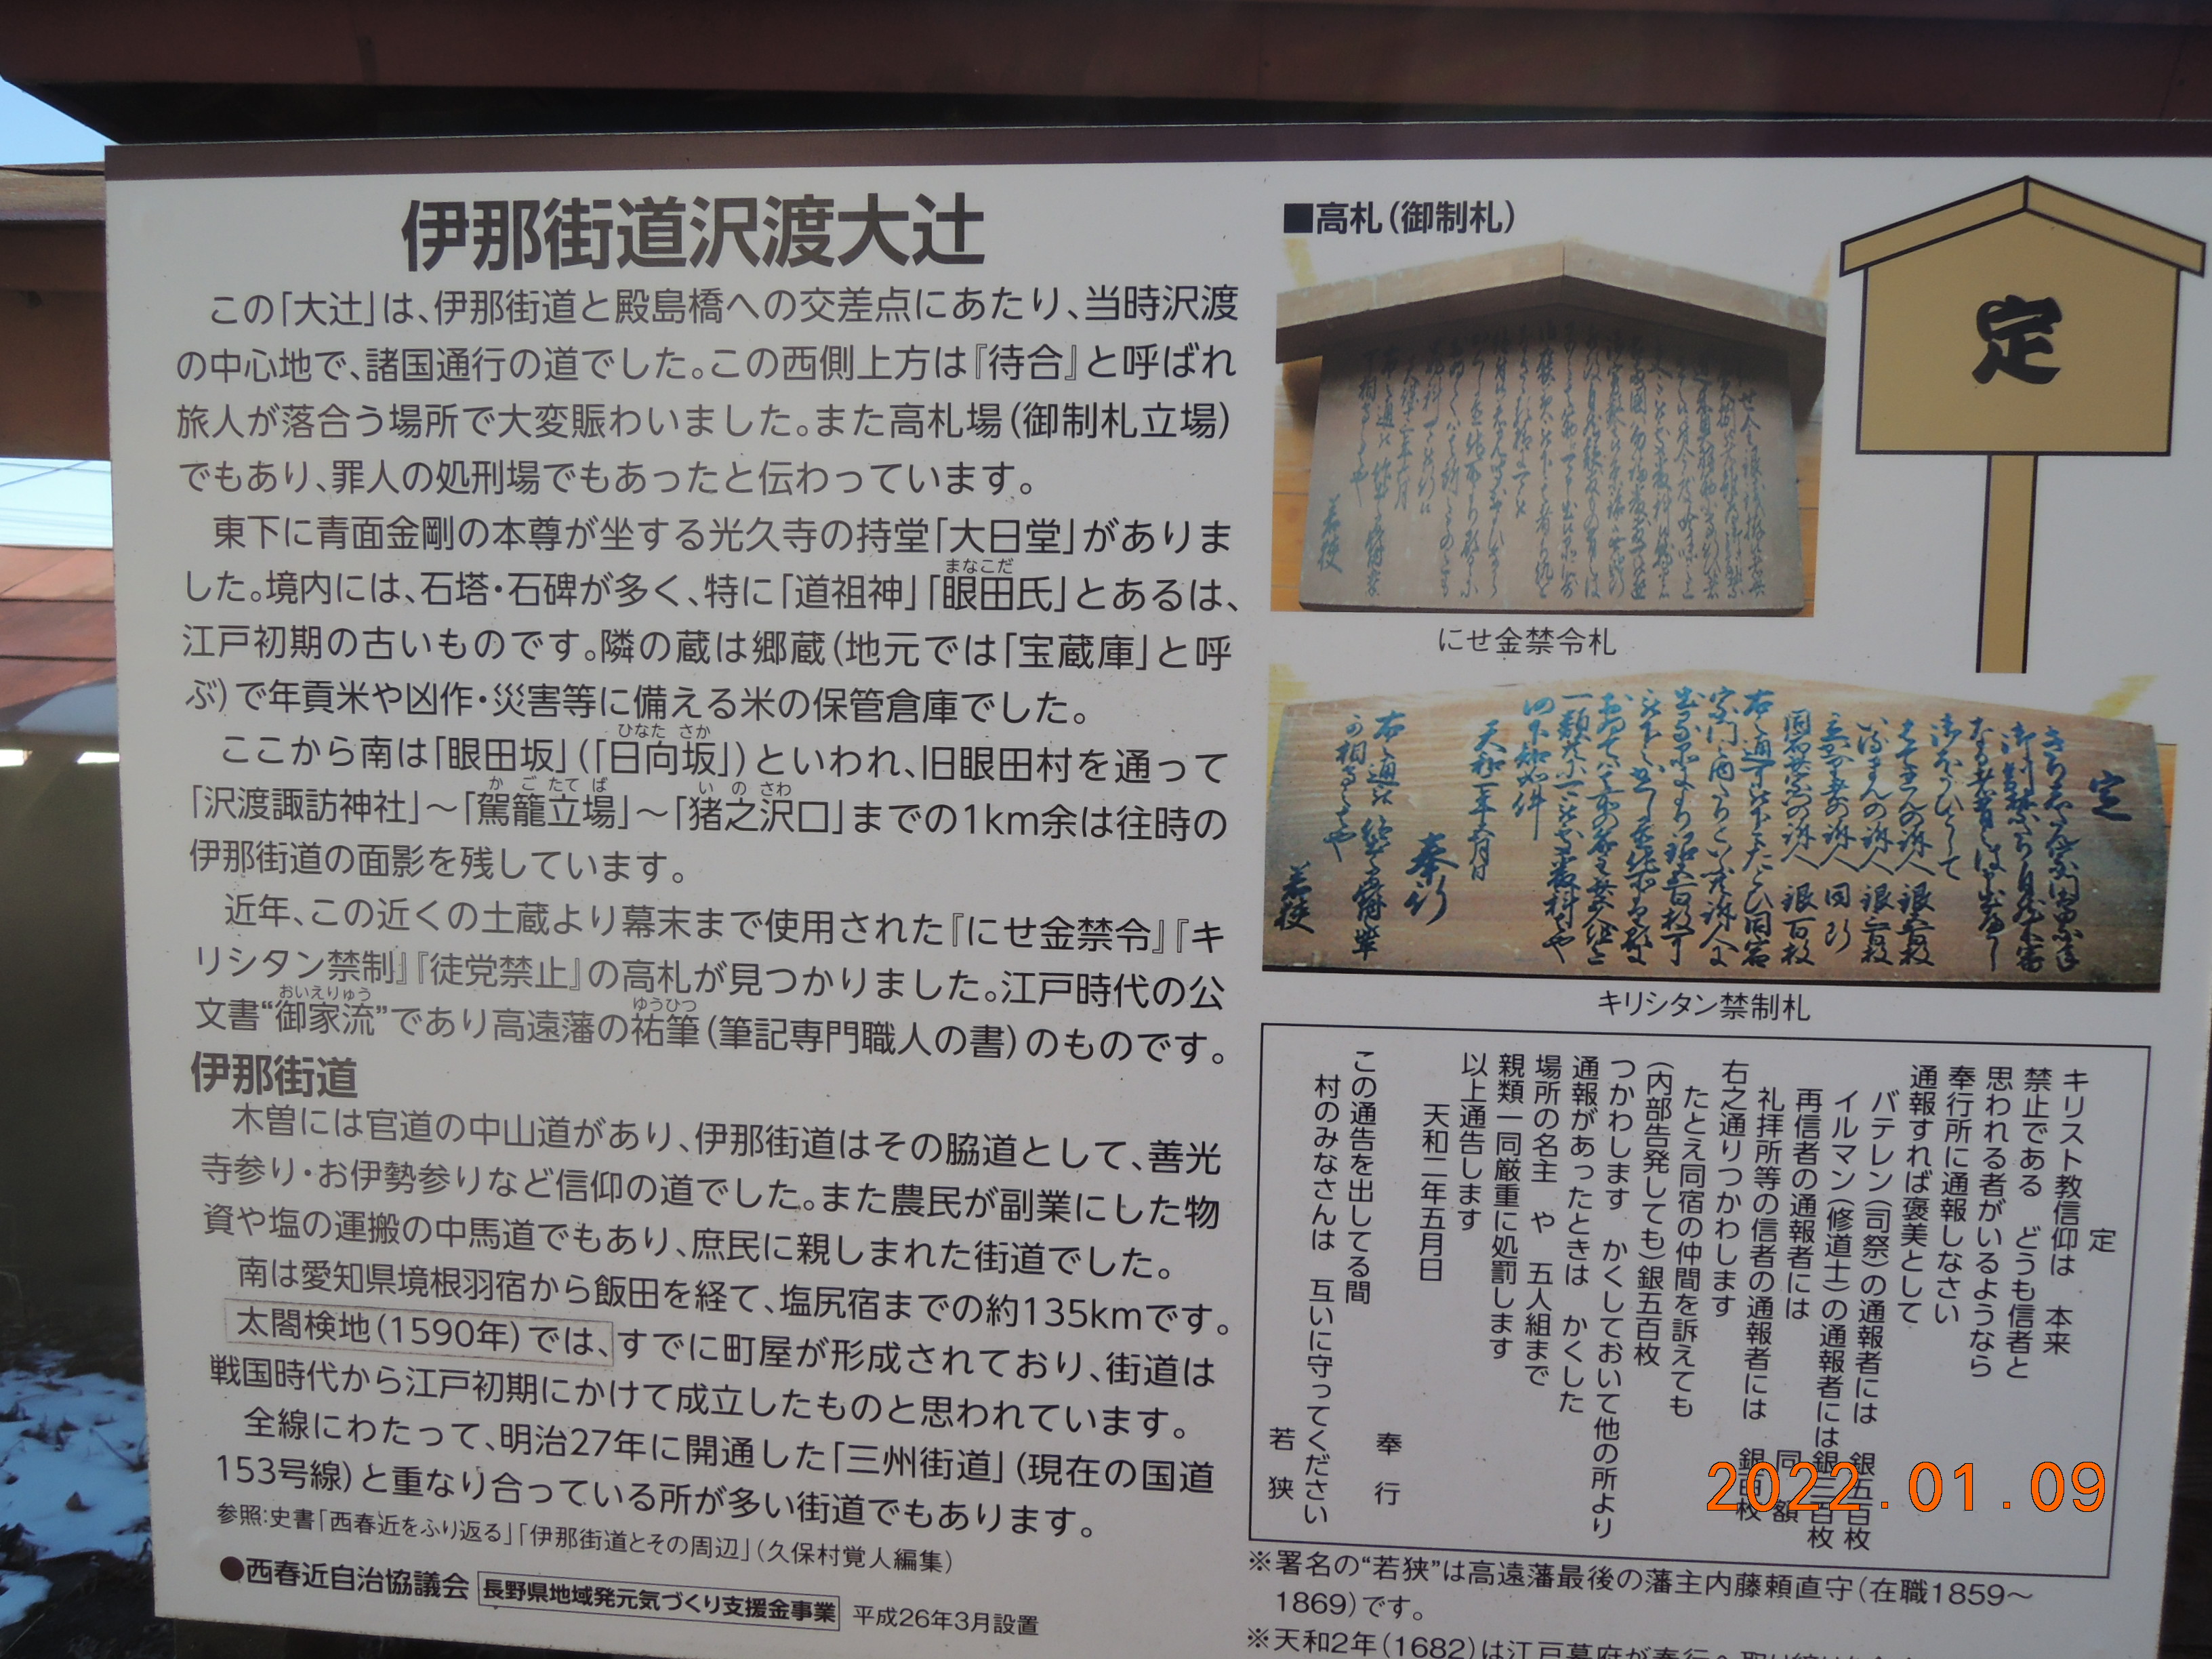 伊那街道沢渡大辻
この「大辻」は、伊那街道と殿島橋への交差点にあたり、当時沢渡
の中心地で、諸国通行の道でした。この西側上方は『待合』と呼ばれ
旅人が落合う場所で大変賑わいました。また高札場(御制札立場)
でもあり、罪人の処刑場でもあったと伝わっています。
東下に青面金剛の本尊が坐する光久寺の持堂「大日堂」がありま
まなこだ
した。境内には、石塔・石碑が多く、特に「道祖神」「眼田氏」とあるは、
江戸初期の古いものです。隣の蔵は郷蔵(地元では「宝蔵庫」と呼
ぶ)で年貢米や凶作・災害等に備える米の保管倉庫でした。
ひなた さか
ここから南は「眼田坂」(「日向坂」)といわれ、旧眼田村を通って
か ご たて ば い の さわ
「沢渡諏訪神社」～「駕籠立場」～「猪之沢口」までの1km余は往時の
伊那街道の面影を残しています。
近年、この近くの土蔵より幕末まで使用された『にせ金禁令』『キ
リシタン禁制』『徒党禁止』の高札が見つかりました。江戸時代の公
おいえりゅう ゆうひつ
文書“御家流”であり高遠藩の祐筆(筆記専門職人の書)のものです。
伊那街道
木曽には官道の中山道があり、伊那街道はその脇道として、善光
寺参り・お伊勢参りなど信仰の道でした。また農民が副業にした物
資や塩の運搬の中馬道でもあり、庶民に親しまれた街道でした。
南は愛知県境根羽宿から飯田を経て、塩尻宿までの約135kmです。
太閤検地(1590年)では、すでに町屋が形成されており、街道は
戦国時代から江戸初期にかけて成立したものと思われています。
全線にわたって、明治27年に開通した「三州街道」(現在の国道
153号線)と重なり合っている所が多い街道でもあります。
参照:史書「西春近をふり返る」「伊那街道とその周辺」(久保村覚人編集)
●西春近自治協議会 長野県地域発元気づくり支援金事業 平成26年3月設置
■高札(御制札)
定
にせ金禁令札
定
奉行
若狭
キリシタン禁制札
定
キリスト教信仰は 本来
禁止である どうも信者と
思われる者がいるようなら
奉行所に通報しなさい
通報すれば褒美として
バテレン(司祭)の通報者には 銀五百枚
イルマン(修道士)の通報者には銀三百枚
再信者の通報者には 同額
礼拝所等の信者の通報者には 銀百枚
右之通りつかわします
たとえ同宿の仲間を訴えても
(内部告発しても)銀五百枚
つかわします かくしておいて他の所より
通報があったときは かくした
場所の名主 や 五人組まで
親類一同厳重に処罰します
以上通告します
天和二年五月日
奉行
この通告を出してる間
村のみなさんは 互いに守ってください
若狭
※署名の“若狭”は高遠藩最後の藩主内藤頼直守(在職1859～
1869)です。
※天和2年(1682)は江戸幕府が奉行へ
2022.01.09